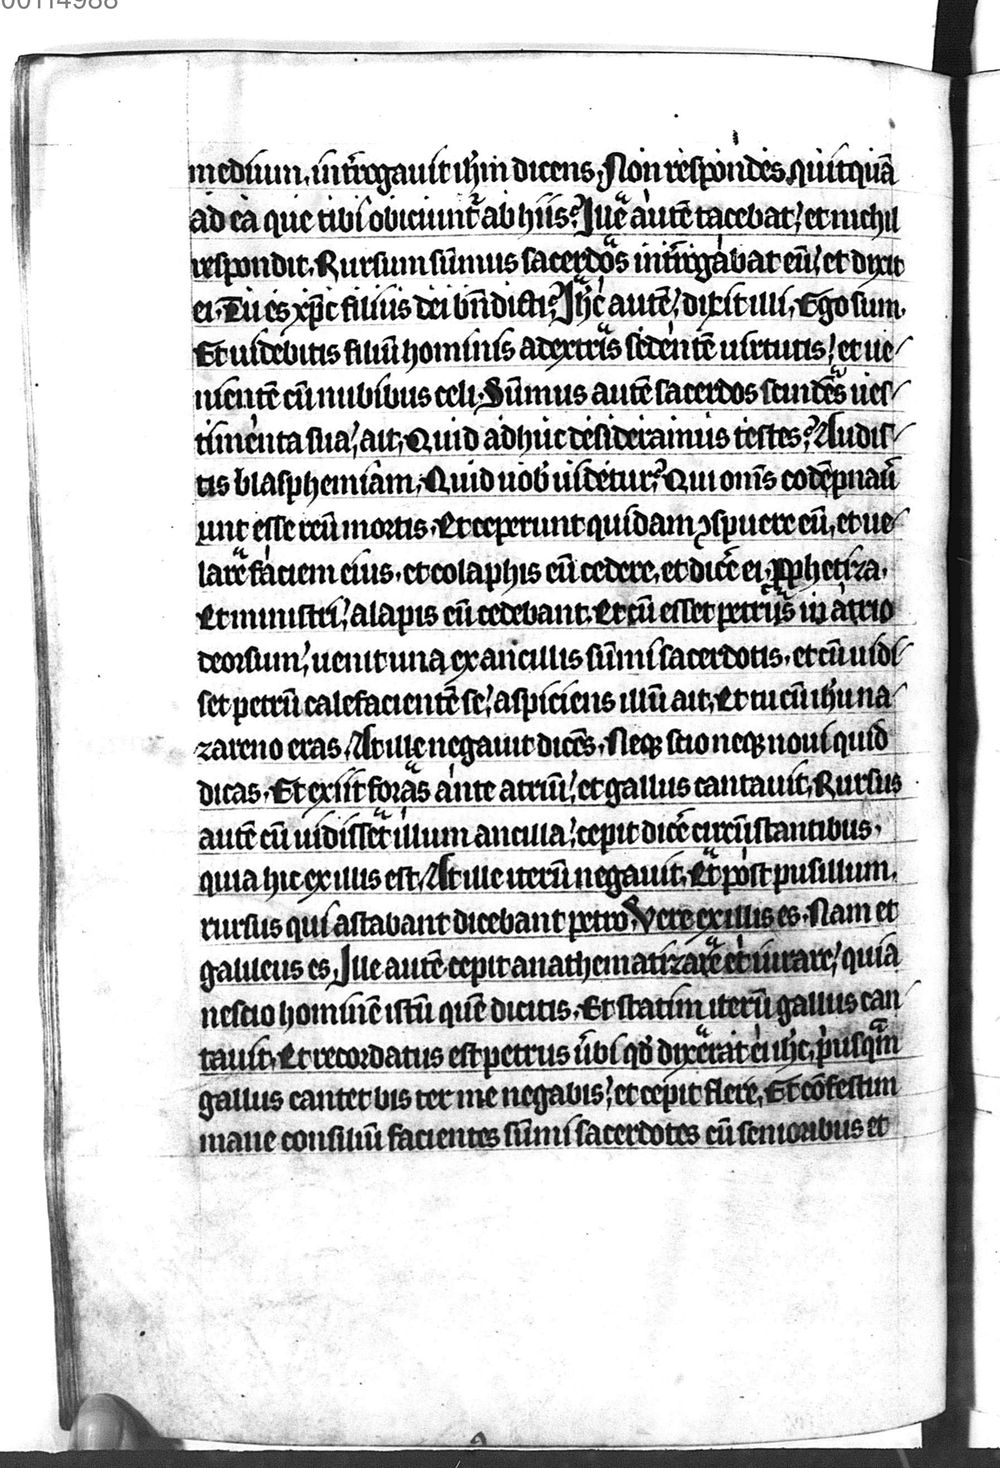 00114988
medium, int̄rogauit ih̄m dicens, Non respondes quitquā
ad ea que tibi obiciunt̄ ab hiis? Ille autē tacebat, et nichil
respondit. Rursum sūmus sacerdos int̄rogabat eū, et dixit
ei. Tu es xp̄c filius dei bn̄dicti? Ih̄c autē, dixit illi, Ego sum.
Et uidebitis filiū hominis adextris sedentē uirtutis, et ue/
nientē cū nubibus celi. Sūmus autē sacerdos scindēs ues/
timenta sua, ait, Quid adhuc desideramus testes? Audis/
tis blasphemiam, Quid uob̄ uidetur? Qui om̄s cōdēpnaū
unt esse reū mortis. Et ceperunt quidam ꝯspuere eū, et ue/
larē faciem eius. et colaphis eū cedere, et dicē ei. Prophetiza.
Et ministri, alapis eū cedebant. Et cū esset petrus in atrio
deorsum, uenit una ex ancillis sūmi sacerdotis. et cū uidi/
set petrū calefacientē se, aspiciens illū ait, Et tu cū ih̄u na/
zareno eras, At ille negauit dicēs, Neq scio neq noui quid
dicas. Et exiit foras ante atriū, et gallus cantauit, Rursus
autē cū uidisset illum ancilla, cepit dicē circūstantibus,
quia hic ex illis est, At ille iterū negauit, Et post pusillum,
rursus qui astabant dicebant petro, Vere ex illis es. Nam et
galileus es, Ille autē cepit anathematizare et iurare, quia
nescio hominē istū quē dicitis. Et statim iterū gallus can/
tauit, Et recordatus est petrus ūbi qd̄ dixerat ei ih̄c, p̄usqm̄
gallus cantet bis ter me negabis, et cepit flere, Et cōfestim
mane consiliū facientes sūmi sacerdotes cū senioribus et